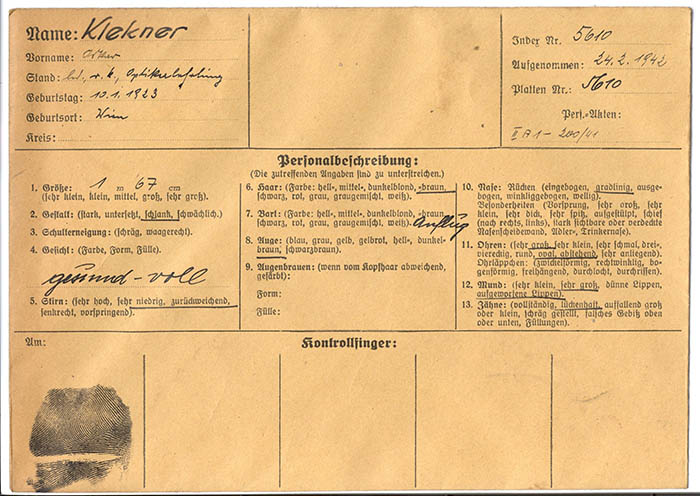 Name: Klekner
Vorname: Other
Stand: led., r. k., Optikerlehrling
Geburtstag: 10. 1. 1923
Geburtsort: Wien
Kreis:
Index Nr. 5610
Aufgenommen: 24. 2. 1942
Platten Nr.: 5610
Pers.-Akten:
II A 1 - 200/41
Personalbeschreibung:
(Die zutreffenden Angaben sind zu unterstreichen.)
1. Größe: 1 m 67 cm
(sehr klein, klein, mittel, groß, sehr groß).
2. Gestalt: (stark, untersetzt, schlank, schwächlich).
3. Schulterneigung: (schräg, waagerecht).
4. Gesicht: (Farbe, Form, Fülle).
gesund - voll
5. Stirn: (sehr hoch, sehr niedrig, zurückweichend,
senkrecht, vorspringend).
6. Haar: (Farbe: hell-, mittel-, dunkelblond, -braun,
schwarz, rot, grau, graugemischt, weiß).
7. Bart: (Farbe: hell-, mittel-, dunkelblond, -braun,
schwarz, rot, grau, graugemischt, weiß). Anflug
8. Auge: (blau, grau, gelb, gelbrot, hell-, dunkel-
braun, schwarzbraun).
9. Augenbrauen: (wenn vom Kopfhaar abweichend,
gefärbt):
Form:
Fülle:
10. Nase: Rücken (eingebogen, gradlinig, ausge-
bogen, winkliggebogen, wellig).
Besonderheiten (Vorsprung, sehr groß, sehr
klein, sehr dick, sehr spitz, aufgestülpt, schief
(nach rechts, links), stark sichtbare oder verdeckte
Nasenscheidewand, Adler-, Trinkernase).
11. Ohren: (sehr groß, sehr klein, sehr schmal, drei-,
viereckig, rund, oval, abstehend, sehr anliegend).
Ohrläppchen: (zwickelförmig, rechtwinklig, bo-
genförmig, freihängend, durchlocht, durchrissen).
12. Mund: (sehr klein, sehr groß, dünne Lippen,
aufgeworfene Lippen).
13. Zähne: (vollständig, lückenhaft, auffallend groß
oder klein, schräg gestellt, falsches Gebiß oben
oder unten, Füllungen).
Am:
Kontrollfinger: